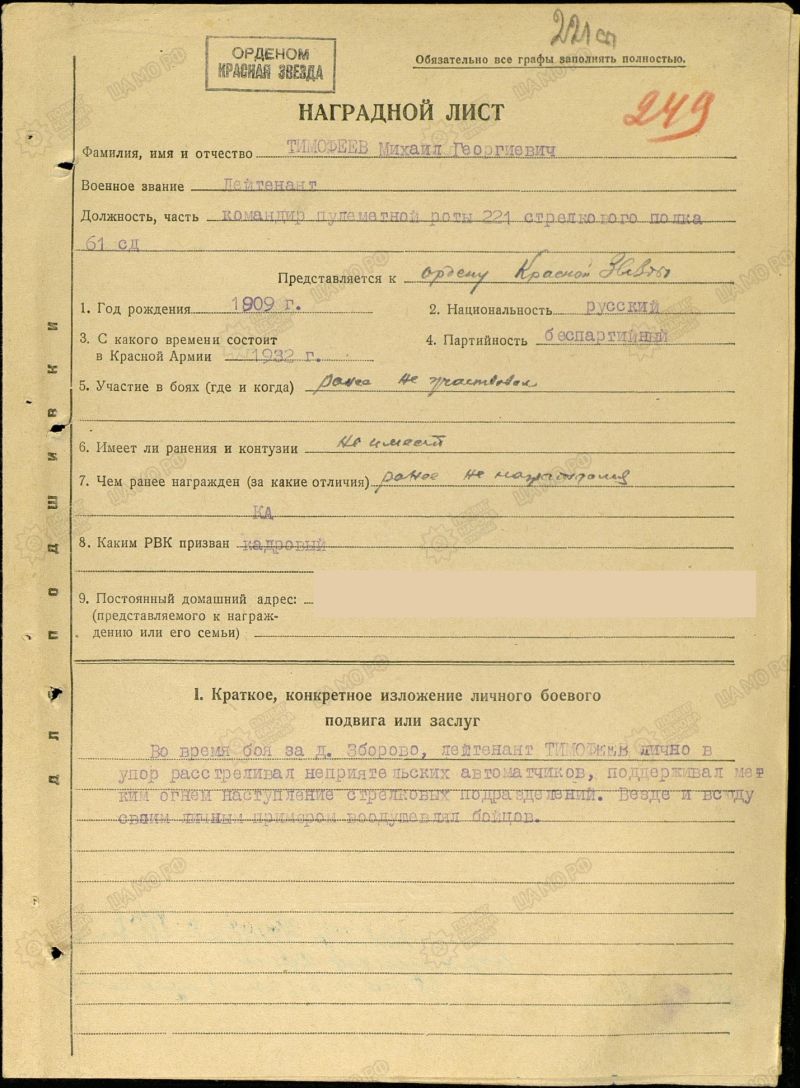 221 сп
ОРДЕНОМ
КРАСНАЯ ЗВЕЗДА
Обязательно все графы заполнять полностью.
НАГРАДНОЙ ЛИСТ
249
Фамилия, имя и отчество ТИМОФЕЕВ Михаил Георгиевич
Военное звание Лейтенант
Должность, часть командир пулеметной роты 221 стрелкового полка
61 сд
Представляется к ордену Красной Звезды
1. Год рождения 1909 г. 2. Национальность русский
3. С какого времени состоит
в Красной Армии 1932 г. 4. Партийность беспартийный
5. Участие в боях (где и когда) ранее не участвовал
6. Имеет ли ранения и контузии не имеет
7. Чем ранее награжден (за какие отличия) ранее не награждался
КА
8. Каким РВК призван кадровый
9. Постоянный домашний адрес:
(представляемого к награж-
дению или его семьи)
I. Краткое, конкретное изложение личного боевого
подвига или заслуг
Во время боя за д. Зборово, лейтенант ТИМОФЕЕВ лично в
упор расстреливал неприятельских автоматчиков, поддерживал мет
ким огнем наступление стрелковых подразделений. Везде и всюду
своим личным примером воодушевлял бойцов.
для подшивки
ЦАМО РФ